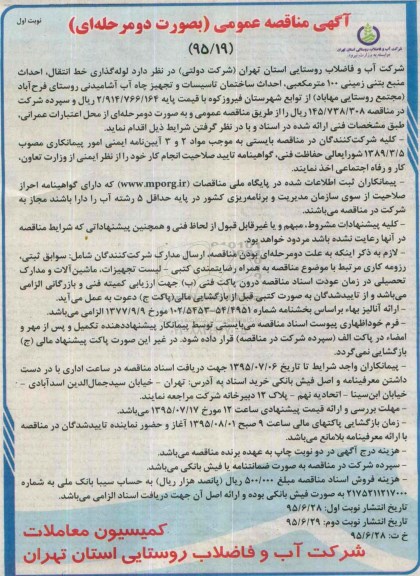 نوبت اول
آگهی مناقصه عمومی (بصورت دومرحله‌ای)
(۹۵/۱۹)
شرکت آب و فاضلاب روستایی استان تهران
شرکت آب و فاضلاب روستایی استان تهران (شرکت دولتی) در نظر دارد لوله‌گذاری خط انتقال، احداث
منبع بتنی زمینی ۱۰۰ مترمکعبی، احداث ساختمان تاسیسات و تجهیز چاه آب آشامیدنی روستای فرح‌آباد
(مجتمع روستایی مهاباد) از توابع شهرستان فیروزکوه با قیمت پایه ۲/۹۱۴/۷۶۶/۱۶۴ ریال و سپرده شرکت
در مناقصه ۱۴۵/۷۳۸/۳۰۸ ریال را از طریق مناقصه عمومی و به صورت دومرحله‌ای از محل اعتبارات عمرانی،
طبق مشخصات فنی ارائه شده در اسناد و با در نظر گرفتن شرایط ذیل اقدام نماید.
- کلیه شرکت‌کنندگان در مناقصه بایستی به موجب مواد ۲ و ۳ آیین‌نامه ایمنی امور پیمانکاری مصوب
۱۳۸۹/۳/۵ شورایعالی حفاظت فنی، گواهینامه تایید صلاحیت انجام کار خود را از نظر ایمنی از وزارت تعاون،
کار و رفاه اجتماعی اخذ نمایند.
- پیمانکاران ثبت اطلاعات شده در پایگاه ملی مناقصات (www.mporg.ir) که دارای گواهینامه احراز
صلاحیت از سوی سازمان مدیریت و برنامه‌ریزی کشور در پایه حداقل ۵ رشته آب را دارا باشند مجاز به
شرکت در مناقصه می‌باشند.
- کلیه پیشنهادات مشروط، مبهم و یا غیرقابل قبول از لحاظ فنی و همچنین پیشنهاداتی که شرایط مناقصه
در آنها رعایت نشده باشد مردود خواهد بود.
- لازم به ذکر اینکه به علت دومرحله‌ای بودن مناقصه، ارسال مدارک شرکت‌کنندگان شامل: سوابق ثبتی،
رزومه کاری مرتبط با موضوع مناقصه به همراه رضایتمندی کتبی - لیست تجهیزات، ماشین‌آلات و مدارک
تحصیلی در زمان عودت اسناد مناقصه درون پاکت فنی (ب) جهت ارزیابی کمیته فنی و بازرگانی الزامی
می‌باشد و از تاییدشدگان به صورت کتبی قبل از بازگشایی مالی (پاکت ج) دعوت به عمل می‌آید.
- ارائه آنالیز بهاء براساس بخشنامه شماره ۵۴/۴۹۵۱-۱۰۲/۵۴۵۳ مورخ ۱۳۷۷/۹/۹ الزامی می‌باشد.
- فرم خوداظهاری پیوست اسناد مناقصه می‌بایستی توسط پیمانکار پیشنهاددهنده تکمیل و پس از مهر و
امضاء در پاکت الف (سپرده شرکت در مناقصه) قرار داده شود. در غیر این صورت پاکت پیشنهاد مالی (ج)
بازگشایی نمی‌گردد.
- پیمانکاران واجد شرایط تا تاریخ ۱۳۹۵/۰۷/۰۶ جهت دریافت اسناد مناقصه در ساعت اداری با در دست
داشتن معرفینامه و اصل فیش بانکی خرید اسناد به آدرس: تهران - خیابان سیدجمال‌الدین اسدآبادی -
خیابان ابن‌سینا - اتحادیه نهم - پلاک ۱۲ دبیرخانه شرکت مراجعه نمایند.
- مهلت بررسی و ارائه قیمت پیشنهادی ساعت ۱۲ مورخ ۱۳۹۵/۰۷/۱۷ می‌باشد.
- زمان بازگشایی پاکتهای مالی ساعت ۹ صبح ۱۳۹۵/۰۸/۰۱ آغاز و حضور نماینده تاییدشدگان در مناقصه
با ارائه معرفینامه بلامانع می‌باشد.
- هزینه درج آگهی در دو نوبت چاپ به عهده برنده مناقصه می‌باشد.
- سپرده شرکت در مناقصه به صورت ضمانتنامه یا فیش بانکی می‌باشد.
- هزینه فروش اسناد مناقصه مبلغ ۵۰۰/۰۰۰ ریال (پانصد هزار ریال) به حساب سیبا بانک ملی به شماره
۲۱۷۵۲۱۱۲۱۷۰۰۰ به صورت فیش بانکی بوده و ارائه اصل آن جهت دریافت اسناد الزامی می‌باشد.
تاریخ انتشار نوبت اول: ۹۵/۶/۲۸
تاریخ انتشار نوبت دوم: ۹۵/۶/۲۹
خ ت: ۹۵/۶/۲۸
کمیسیون معاملات
شرکت آب و فاضلاب روستایی استان تهران